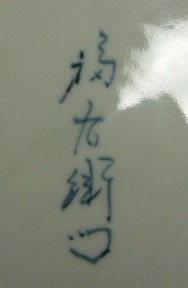 福右衛門